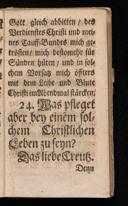 Gott gleich abbitten / des
Verdienstes Christi und mei-
nes Tauff-Bundes mich ge-
trösten / mich destomehr für
Sünden hüten / und in sol-
chem Vorsatz mich öffters
mit dem Leibe und Blute
Christi im Abendmal stärcken /
24. Was pfleget
aber bey einem sol-
chem Christlichen
Leben zu seyn?
Das liebe Creutz.
Denn